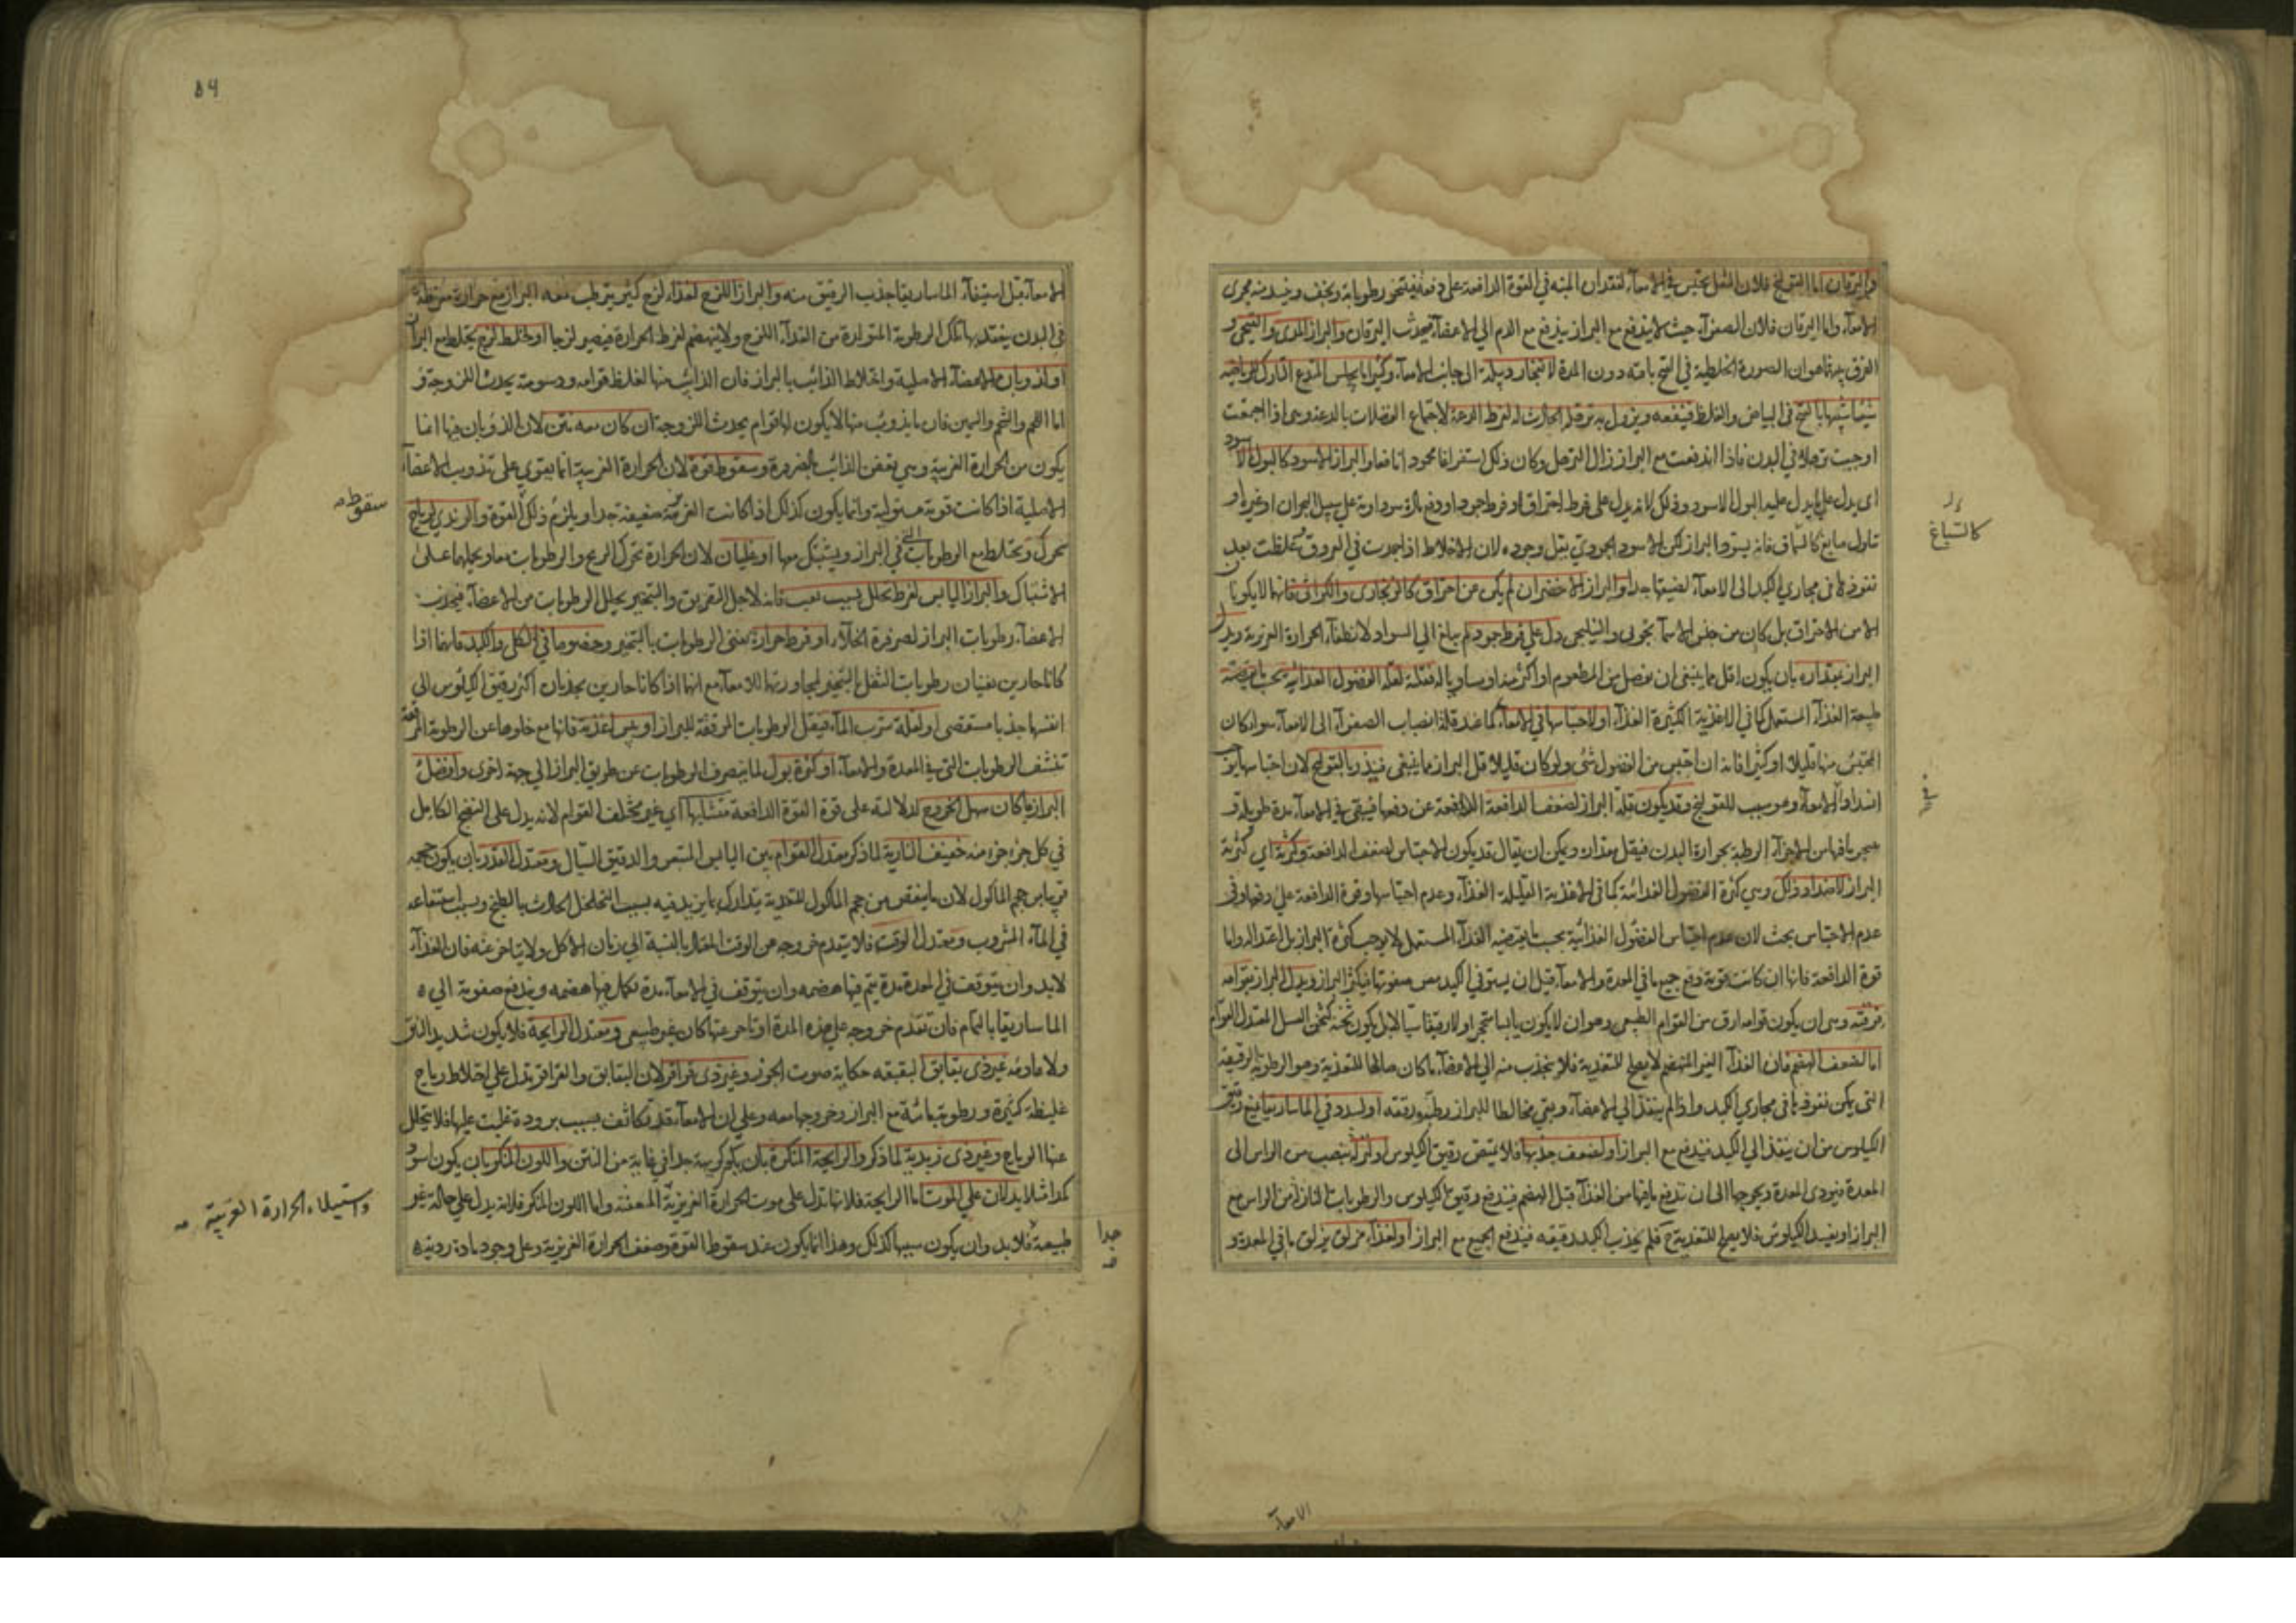 واليرقان اما القولنج فلان الثفل يحتبس في الامعآء لفقدان المنبه في القوة الدافعة على دفعه فيتبخر رطوباته ويجف وينسد منه مجرى
الامعآء واما اليرقان فلان الصفرآء حيث لا يندفع مع البراز يندفع مع الدم الى الاعضآء فيحدث اليرقان والبراز المدى والقيحى و
الفرق بينهما هو ان الصورة الخلطية في القيح باقية دون المدة لانفجار دبيلة الى جانب الامعآء وكثيرا ما يجلس المتدع التارك للرياضة
شيئا شبيها بالقيح في البياض والغلظ فينفعه ويزول به ترهله الحادث له لفرط الدعة لاجتماع الفضلات بالدعة وهى اذا اجتمعت
اوجبت ترهلا في البدن فاذا اندفعت مع البراز زال الترهل وكان ذلك استفراغا محمودا نافعا والبراز الاسود كالبول الاسود
اى يدل على ما يدل عليه البول الاسود وذلك لانه يدل على فرط احتراق او فرط جمود او دفع مادة سوداوية على سبيل البحران او غيره او
تناول صابغ كالسماق فانه يسود البراز لكن الاسود الجمودي يقل وجوده لان الاخلاط اذا جمدت في العروق غلظت بعدن
نفوذها في مجاري الكبد الى الامعآء لضيقها جدا والبراز الاخضر ان لم يكن من احتراق كالزنجارى والكراثى فانهما لا يكونا
الا من الاحتراق بل كان من جنس الاسمآنجونى والنيلجى دل على فرط جمود لم يبلغ الى السواد ولانطفآء الحرارة الغريزية ويدل
البراز بمقداره بان يكون اقل مما ينبغى ان يفصل من المطعوم او اكثر منه او مساويا له فقلته لقلة الفضول الغذائية بحسب ما يقتضيه
طبيعة الغذآء المستعمل كما في الاغذية الكثيرة الغذآء او لاحتباسها في الامعآء كما عند قلة انصباب الصفرآء الى الامعآء سوا كان
المحتبس منها قليلا او كثيرا فانه ان احتبس من الفضول شئ ولو كان قليلا قل البراز مما ينبغى فينذر بالقولنج لان احتباسها يوجب
انسداد الامعآء وهو سبب للقولنج وقد يكون قلة البراز لضعف الدافعة اللادافعة عن دفعها فيبقى في الامعآء مدة طويلة و
يتبخر ما فيها من الاجزآء الرطبة بحرارة البدن فيقل مقداره ويمكن ان يقال قد يكون الاحتباس لضعف الدافعة وكثرته اي كثرة
البراز لاضداد ذلك وهى كثرة الفضول الغذائية كما في الاغذية القليلة الغذآء وعدم احتباسها وقوة الدافعة على دفعها وفى
عدم الاحتباس بحث لان عدم احتباس الفضول الغذائية بحسب ما يقتضيه الغذآء المستعمل لا يوجب كثرة البراز بل اعتداله واما
قوة الدافعة فانها ان كانت قوية دفع جميع ما في المعدة والامعآء قبل ان يستوفي الكبد مص صفوتها فيكثر البراز ويدل البراز بقوامه
فرقته وهى ان يكون قوامه ارق من القوام الطبيعى وهو ان لا يكون يابسا متحجرا ولا رقيقا سيالا بل يكون ثخنه كثخن العسل المعتدل القوام
اما لضعف الهضم فان الغذآء الغير المنهضم لا يصلح للتغذية فلا ينجذب منه الى الاعضآء ما كان صالحا للتغذية وهو الرطوبة الرقيقة
التى يمكن نفوذها في مجاري الكبد واذا لم ينفذ الى الاعضآء وبقي مخالطا للبراز رطبه ورققه او لسدد في الماساريقا فيمنع رقيق
الكيلوس من ان ينفذ الي الكبد فيندفع مع البراز او لضعف جذبها فلا يمتص رقيق الكيلوس او لنزلة ينصب من الراس الى
المعدة فيؤذى المعدة ويحوجها الى ان تدفع ما فيها من الغذآء قبل الهضم فيندفع رقيق الكيلوس والرطوبات النازلة من الراس مع
البراز او يفسد الكيلوس فلا يصلح للتغذية فلم يجذب الكبد رقيقه فيندفع الجميع مع البراز او لغذآء مزلق يزلق ما في المعدة و
كالسباغ
الامعآء
84
الامعآء قبل استيفآء الماساريقا جذب الرقيق منه والبراز اللزج لغذآء لزج كثير يترطب معه البراز مع حرارة مفرطة
في البدن ينعقد بها تلك الرطوبة المتولدة من الغذآء اللزج ولا ينهضم لفرط الحرارة فيصير لزجا او لخلط لزج يختلط مع البراز
او لذوبان الاعضآء الاصلية واختلاط الذائب بالبراز فان الذائب منها لغلظ قوامه ودسومته يحدث اللزوجة و
اما اللحم والشحم والسمين فان ما يذوب منها لا يكون لها قوام يحدث اللزوجة ان كان معه نتن لان الذوبان فيها انما
يكون من الحرارة الغريبة وهي تعفن الذائب بالضرورة وسقوط قوة لان الحرارة الغريبة انما يقوي على تذويب الاعضآء
الاصلية اذا كانت قوية مستولية وانما يكون كذلك اذا كانت الغريزية ضعيفة جدا ويلزم ذلك القوة والزبدي لرياح
تتحرك وتختلط مع الرطوبات التي في البراز ويشتبك معها او غليان لان الحرارة تحرك الريح والرطوبات معا ويحيلهما على
الاشتباك والبراز اليابس لفرط تحلل بسبب تعب فانه لاجل التفريق والتبخير يحلل الرطوبات من الاعضآء فيجذب
الاعضآء رطوبات البراز لضرورة الخلآء او فرط حرارة يفنى الرطوبات بالتبخير وخصوصا في الكلى والكبد فانهما اذا
كانا حارين يفنيان رطوبات الثفل بالتبخير لمجاورتهما للامعآء مع انهما اذا كانا حارين يجذبان اكثر رقيق الكيلوس الي
انفسهما جذبا مستقصى او لقلة شرب المآء فيقل الرطوبات المرققة للبراز او يبس اغذية فانها مع خلوها عن الرطوبة المرققة
تنشف الرطوبات التى في المعدة والامعآء او كثرة بول لما ينصرف الرطوبات عن طريق البراز الي جهة اخرى وافضل
البراز ما كان سهل الخروج لدلالته على قوة القوة الدافعة متشابها اي غير مختلف القوام لانه يدل على النضج الكامل
في كل جزء جزء منه خفيف النارية لما ذكر معتدل القوام بين اليابس المتحجر والرقيق السيال ومعتدل القدر بان يكون حجمه
قريبا من حجم الماكول لان ما ينقص من حجم الماكول للتغذية يتدارك بما يزيد فيه بسبب التخلخل الحادث بالطبخ وبسبب استنقاعه
في المآء المشروب ومعتدل الوقت فلا يتقدم خروجه من الوقت المعتاد بالنسبة الى زمان الاكل ولا يتاخر عنه فان الغذآء
لابد وان يتوقف في المعدة مدة يتم فيها هضمه وان يتوقف في الامعآء مدة تكمل فيها هضمه ويندفع صفوته الى
الماساريقا بالتمام فان تقدم خروجه على هذه المدة او تاخر عنها كان غير طبيعى ومعتدل الرايحة فلا يكون شديد النتن
ولا عادمه غير ذى بقابق البقبقة حكاية صوت الجوز وغير ذى قراقر لان البقابق والقراقر تدل علي اختلاط رياح
غليظة كثيرة ورطوبة مائية مع البراز وخروجها معه وعلى ان الامعآء قد تكاثف بسبب برودة غلبت عليها فلا يتحلل
عنها الرياح وغير ذى زبدية لما ذكر والرايحة المنكرة بان يكون كريهة جدا في غاية من النتن واللون المنكر بان يكون اسود
كمدا مثلا يدلان علي الموت اما الرايحة فلانها تدل على موت الحرارة الغريزية المعفنة واما اللون المنكر فلانه يدل علي حالة غير
طبيعية فلابد وان يكون سببها كذلك وهذا انما يكون عند سقوط القوة وضعف الحرارة الغريزية وعلى وجود مادة رديه
سقوط صح
واستيلاء الحرارة الغريبة صح
جدا